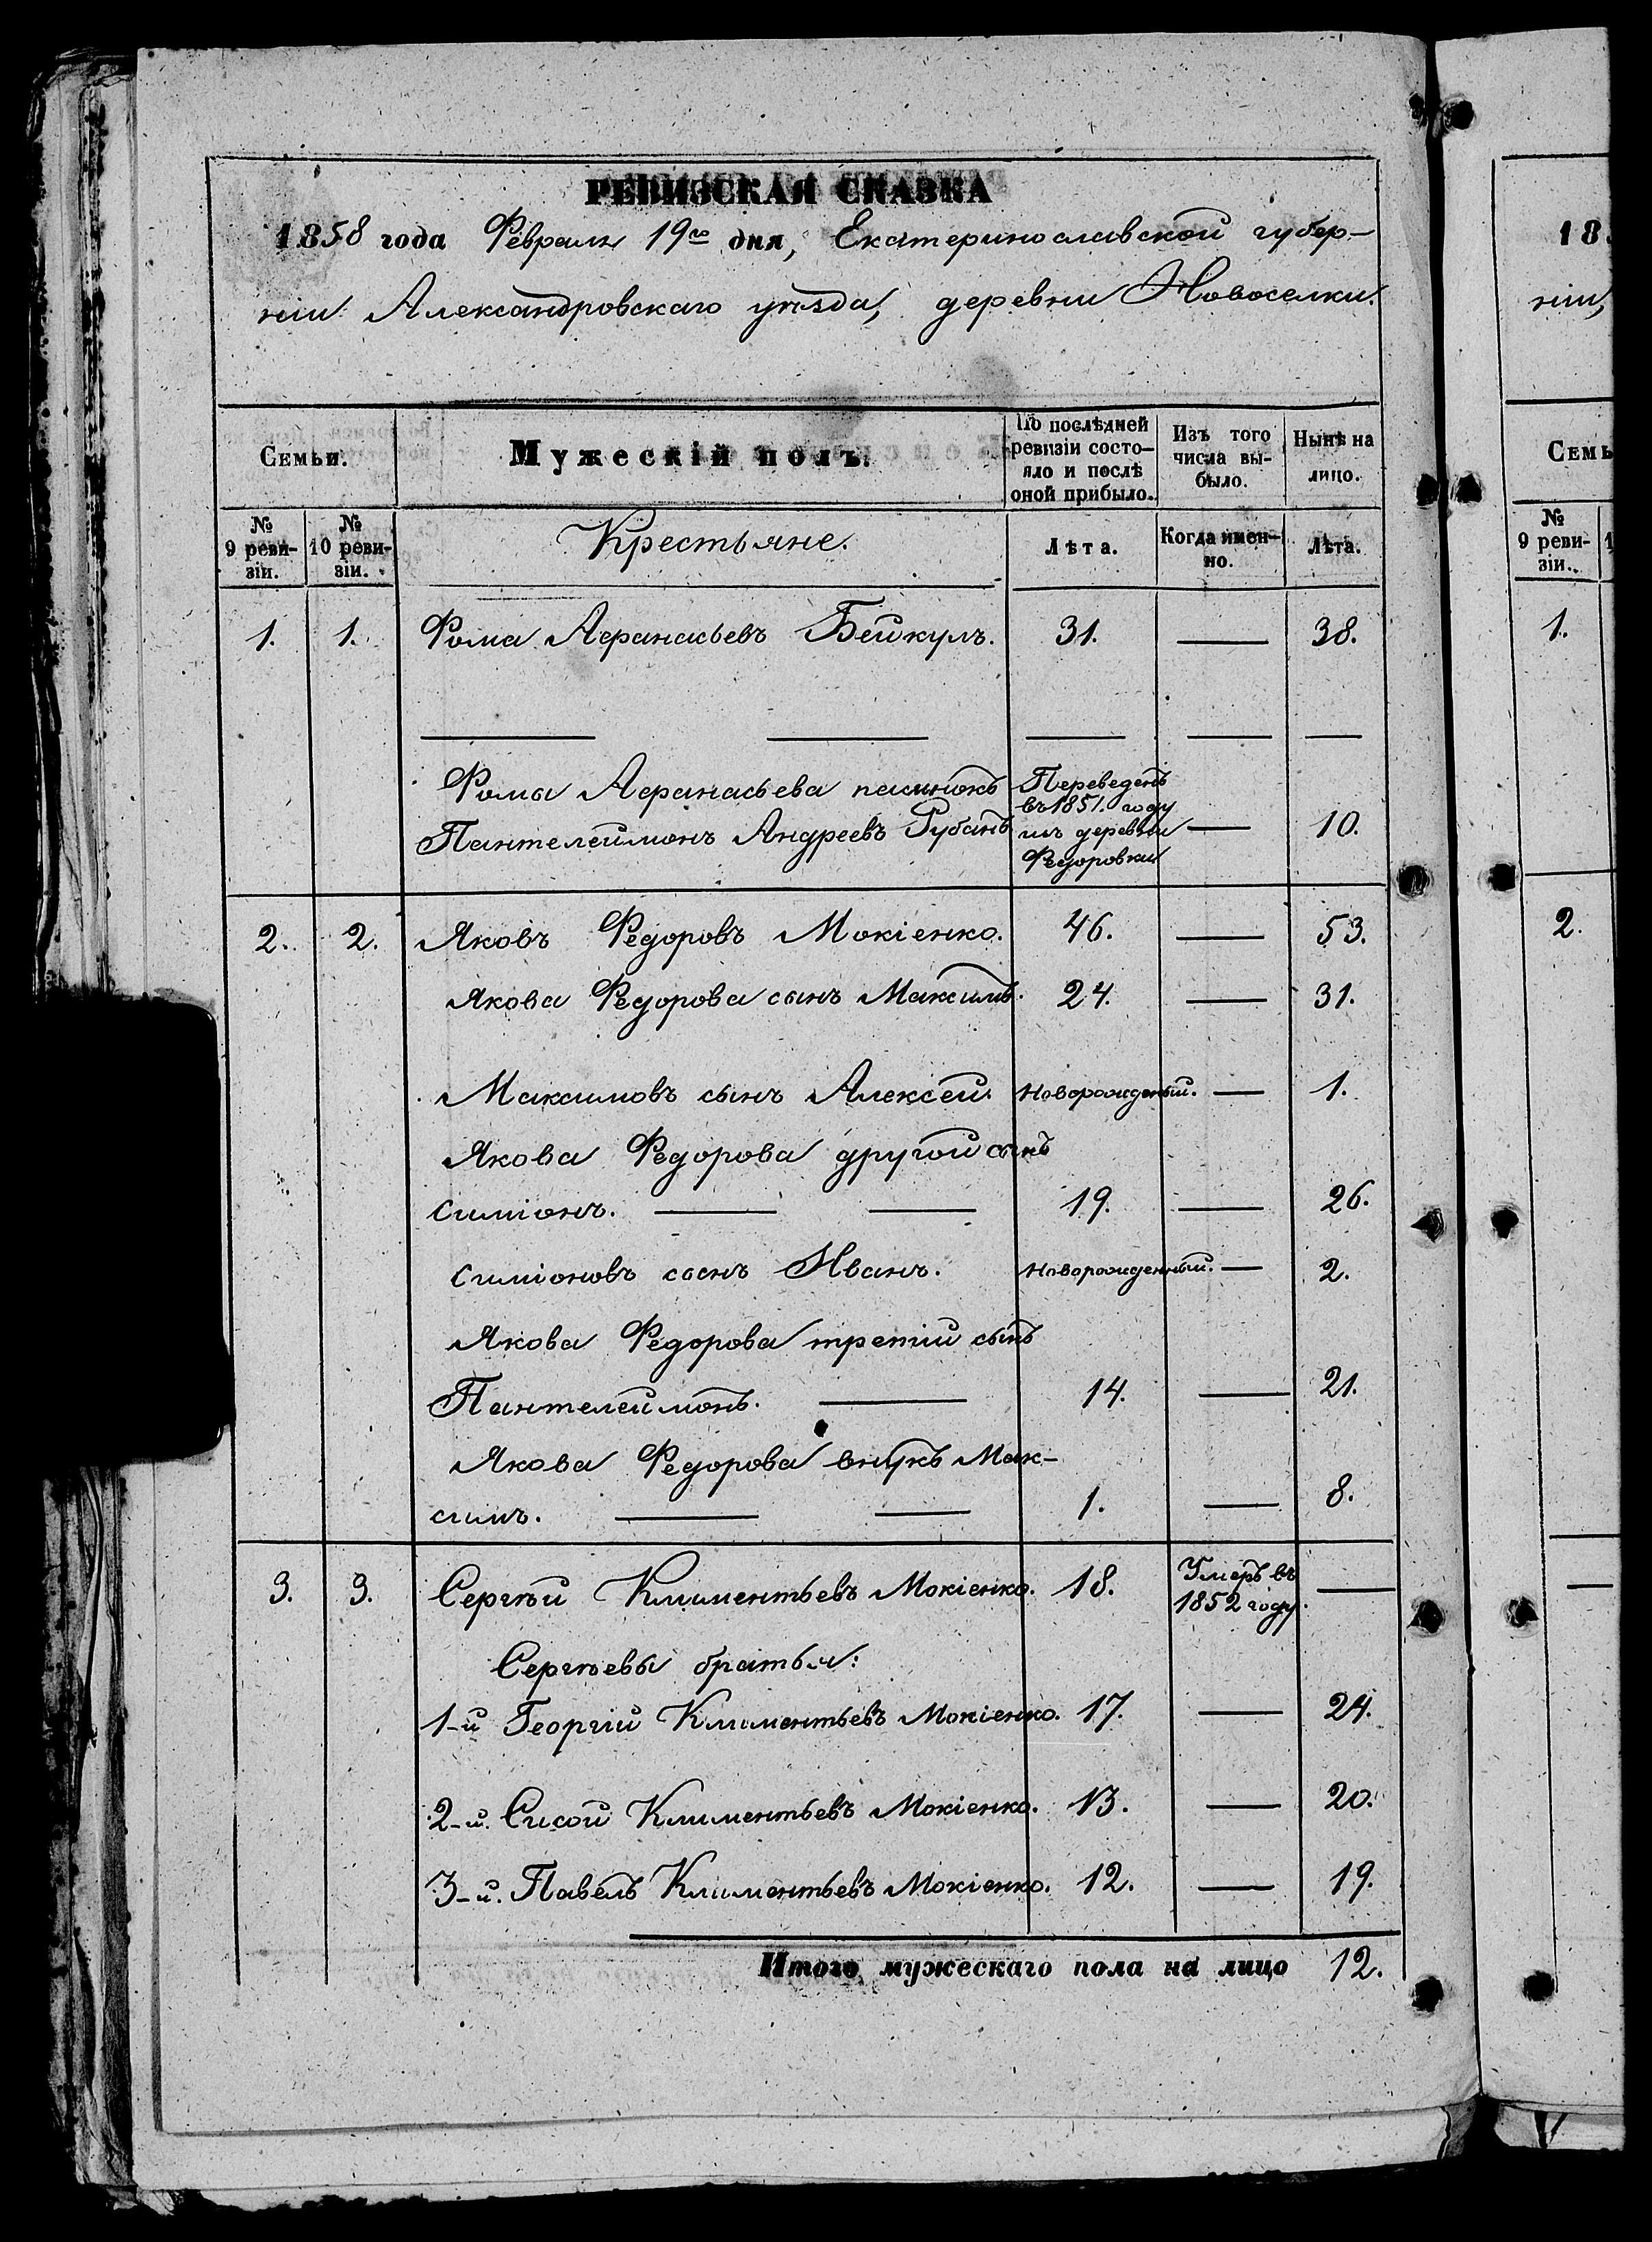 РЕВИЗСКАЯ СКАЗКА
1858 года Февраля 19го дня, Екатеринославской губер-
ніи Александровскаго уѣзда, деревни Новоселки.
Семьи. Мужескій полъ. По послѣдней ревизіи состо-яло и послѣ оной прибыло. Изъ того числа вы-было. Нынѣ на лицо.
№ 9 реви-зіи. № 10 реви-зіи. Крестьяне. Лѣта. Когда имен-но. Лѣта.
1. 1. Фома Афанасьевъ Бейкулъ. 31. — 38.
Фомы Афанасьева пасынокъ Переведенъ
въ 1851. году
Пантелеймонъ Андреевъ Рубанъ изъ деревни — 10.
Федоровки
2. 2. Яковъ Федоровъ Мокіенко. 46. — 53.
Якова Федорова сынъ Максимъ. 24. — 31.
Максимовъ сынъ Алексей. Новорожденый. — 1.
Якова Федорова другой сынъ
Симіонъ. — — 19. — 26.
Симіоновъ сынъ Иванъ. Новорожденный. — 2.
Якова Федорова третій сынъ
Пантелеймонъ. — 14. — 21.
Якова Федорова внукъ Мак-
симъ. — — 1. — 8.
3. 3. Сергѣй Климентьевъ Мокіенко. 18. Умеръ въ 1852 году. —
Сергѣевы братья:
1-й Георгій Климентьевъ Мокіенко. 17. — 24.
2-й. Сисой Климентьевъ Мокіенко. 13. — 20.
3-й. Павелъ Климентьевъ Мокіенко. 12. — 19.
Итого мужескаго пола на лицо 12.
18
ніи,
Семь
№
9 реви-
зіи.
1.
2.